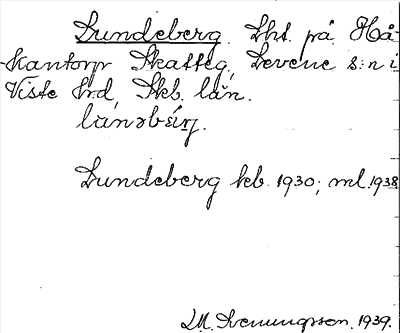 Lundeberg. Lht. på Hå-
kantorp Skatteg, Levene s:n i
Viste hrd, Skb. län.
lùnəbèrj.
Lundeberg kb 1930; ml. 1938
L.M. Svenungsson. 1939.